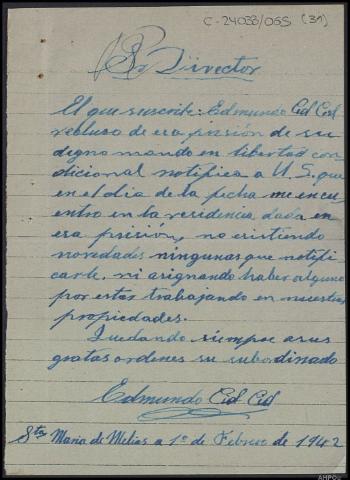 C-24033/065 (31)
Sr Director
El que suscribe: Edmundo Cid Cid
recluso de esa prisión de su
digno mando en libertad con
dicional notifica a U.S. que
en el dia de la fecha me encu
entro en la residencia dada en
esa prisión, no existiendo
novedades ningunas que notifi
carle, ni asignando haber alguno
por estar trabajando en nuestras
propiedades.
Quedando siempre a sus
gratas ordenes su subordinado
Edmundo Cid Cid
Sta Maria de Melias a 1º de Febrero de 1942
AHPOu